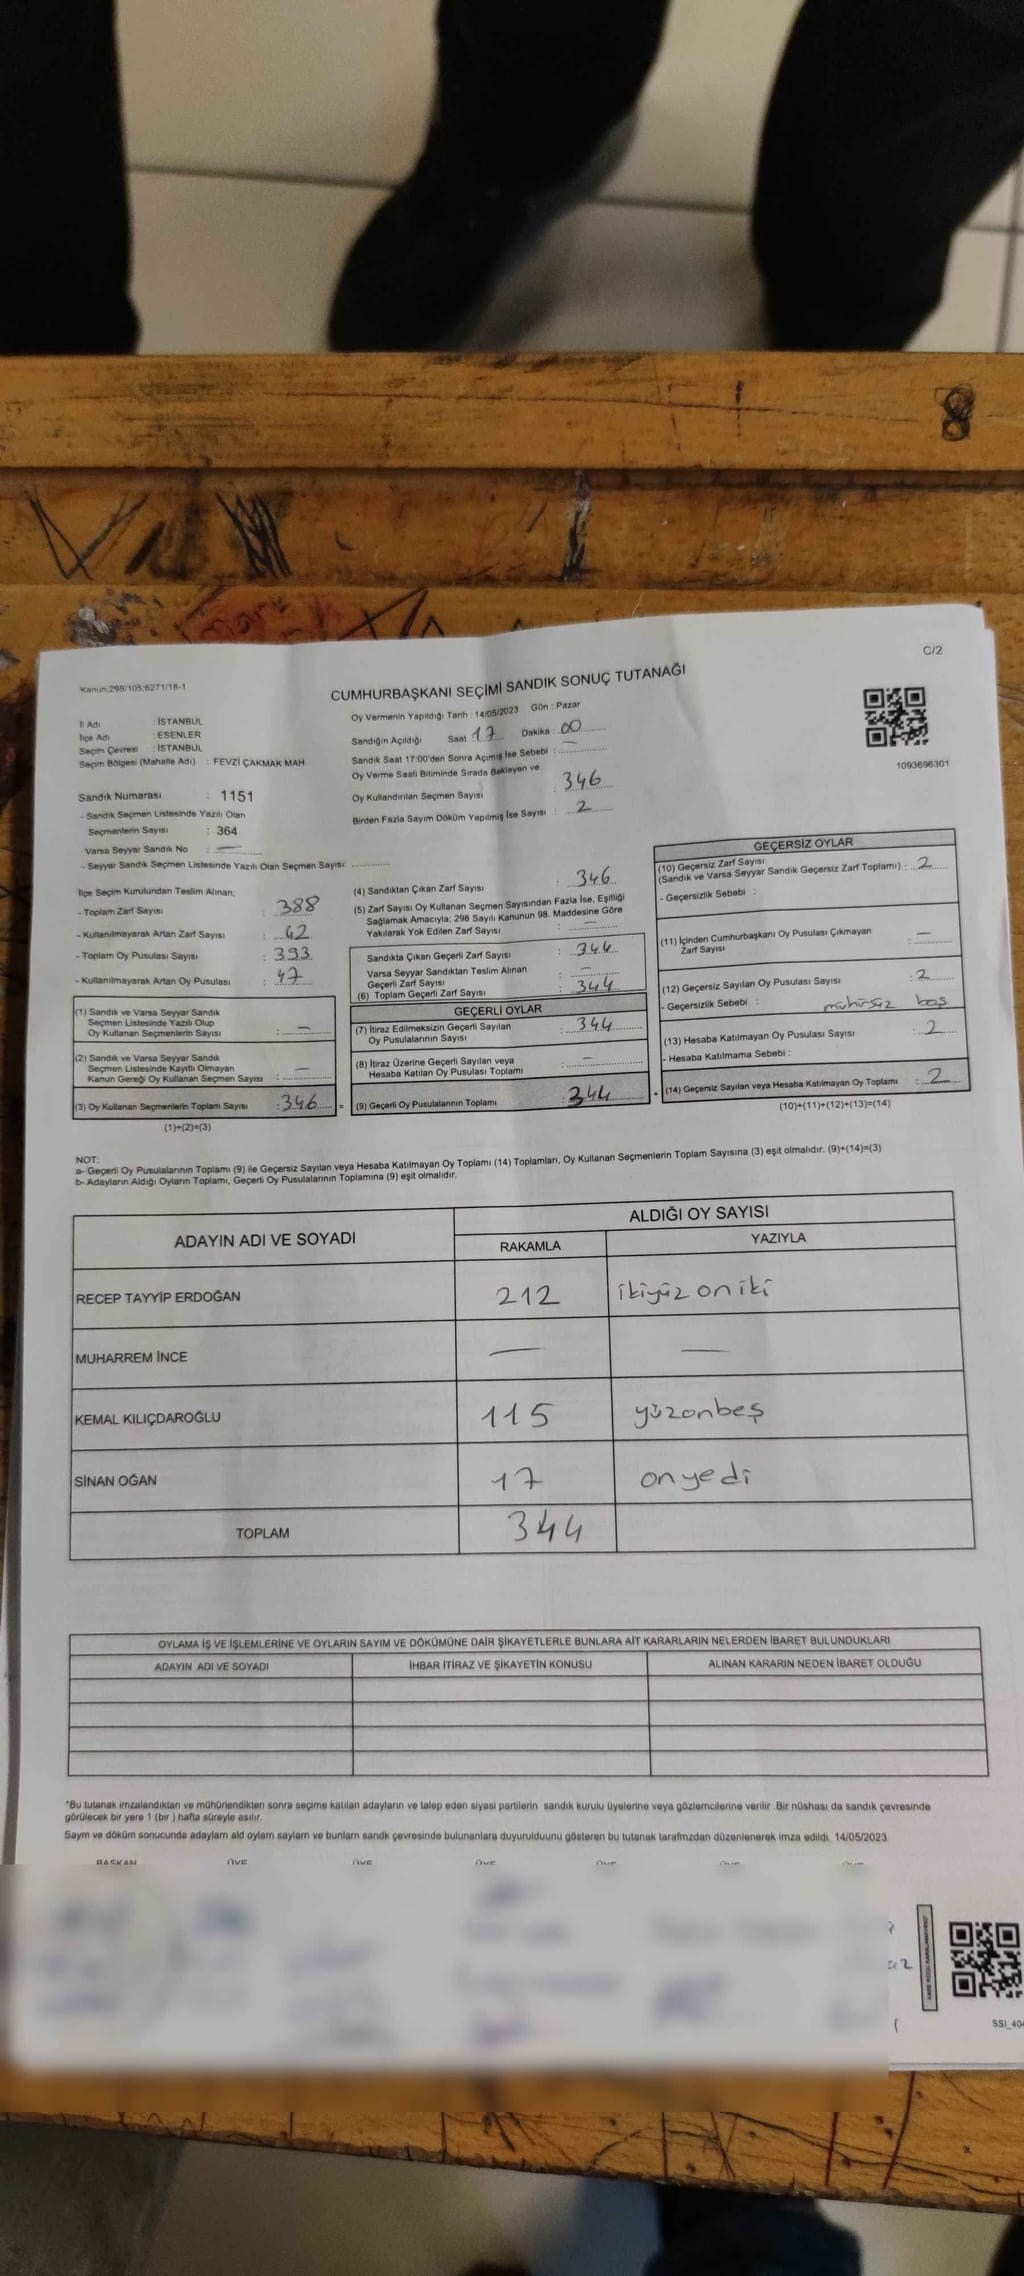 8
C/2
Kanun:298/105:6271/18-1
CUMHURBAŞKANI SEÇİMİ SANDIK SONUÇ TUTANAĞI
İl Adı : İSTANBUL
İlçe Adı : ESENLER
Seçim Çevresi : İSTANBUL
Seçim Bölgesi (Mahalle Adı) : FEVZİ ÇAKMAK MAH.
Oy Vermenin Yapıldığı Tarih : 14/05/2023 Gün : Pazar
Sandığın Açıldığı Saat 17 Dakika : 00
Sandık Saat 17:00'den Sonra Açılmış İse Sebebi : —
Oy Verme Saati Bitiminde Sırada Bekleyen ve
Oy Kullandırılan Seçmen Sayısı : 346
Birden Fazla Sayım Döküm Yapılmış İse Sayısı : 2
1093696301
Sandık Numarası : 1151
- Sandık Seçmen Listesinde Yazılı Olan
Seçmenlerin Sayısı : 364
Varsa Seyyar Sandık No : —
- Seyyar Sandık Seçmen Listesinde Yazılı Olan Seçmen Sayısı:
İlçe Seçim Kurulundan Teslim Alınan;
- Toplam Zarf Sayısı : 388
- Kullanılmayarak Artan Zarf Sayısı : 42
- Toplam Oy Pusulası Sayısı : 393
- Kullanılmayarak Artan Oy Pusulası : 47
(1) Sandık ve Varsa Seyyar Sandık
Seçmen Listesinde Yazılı Olup
Oy Kullanan Seçmenlerin Sayısı : —
(2) Sandık ve Varsa Seyyar Sandık
Seçmen Listesinde Kayıtlı Olmayan
Kanun Gereği Oy Kullanan Seçmen Sayısı : —
(3) Oy Kullanan Seçmenlerin Toplam Sayısı : 346 =
(1)+(2)=(3)
(4) Sandıktan Çıkan Zarf Sayısı : 346
(5) Zarf Sayısı Oy Kullanan Seçmen Sayısından Fazla İse, Eşitliği
Sağlamak Amacıyla; 298 Sayılı Kanunun 98. Maddesine Göre
Yakılarak Yok Edilen Zarf Sayısı : —
Sandıkta Çıkan Geçerli Zarf Sayısı : 344
Varsa Seyyar Sandıktan Teslim Alınan
Geçerli Zarf Sayısı : —
(6) Toplam Geçerli Zarf Sayısı : 344
GEÇERLİ OYLAR
(7) İtiraz Edilmeksizin Geçerli Sayılan
Oy Pusulalarının Sayısı : 344
(8) İtiraz Üzerine Geçerli Sayılan veya
Hesaba Katılan Oy Pusulası Toplamı : —
(9) Geçerli Oy Pusulalarının Toplamı : 344 +
GEÇERSİZ OYLAR
(10) Geçersiz Zarf Sayısı
(Sandık ve Varsa Seyyar Sandık Geçersiz Zarf Toplamı) : 2
- Geçersizlik Sebebi :
(11) İçinden Cumhurbaşkanı Oy Pusulası Çıkmayan
Zarf Sayısı : —
(12) Geçersiz Sayılan Oy Pusulası Sayısı : 2
- Geçersizlik Sebebi : mühürsüz boş
(13) Hesaba Katılmayan Oy Pusulası Sayısı : 2
- Hesaba Katılmama Sebebi :
(14) Geçersiz Sayılan veya Hesaba Katılmayan Oy Toplamı : 2
(10)+(11)+(12)+(13)=(14)
NOT:
a- Geçerli Oy Pusulalarının Toplamı (9) ile Geçersiz Sayılan veya Hesaba Katılmayan Oy Toplamı (14) Toplamları, Oy Kullanan Seçmenlerin Toplam Sayısına (3) eşit olmalıdır. (9)+(14)=(3)
b- Adayların Aldığı Oyların Toplamı, Geçerli Oy Pusulalarının Toplamına (9) eşit olmalıdır.
ADAYIN ADI VE SOYADI ALDIĞI OY SAYISI
RAKAMLA YAZIYLA
RECEP TAYYİP ERDOĞAN 212 ikiyüz oniki
MUHARREM İNCE — —
KEMAL KILIÇDAROĞLU 115 yüzonbeş
SİNAN OĞAN 17 onyedi
TOPLAM 344
OYLAMA İŞ VE İŞLEMLERİNE VE OYLARIN SAYIM VE DÖKÜMÜNE DAİR ŞİKAYETLERLE BUNLARA AİT KARARLARIN NELERDEN İBARET BULUNDUKLARI
ADAYIN ADI VE SOYADI İHBAR İTİRAZ VE ŞİKAYETİN KONUSU ALINAN KARARIN NEDEN İBARET OLDUĞU
*Bu tutanak imzalandıktan ve mühürlendikten sonra seçime katılan adayların ve talep eden siyasi partilerin sandık kurulu üyelerine veya gözlemcilerine verilir .Bir nüshası da sandık çevresinde
görülecek bir yere 1 (bir ) hafta süreyle asılır.
Sayım ve döküm sonucunda adayların ald oyların sayıların ve bunların sandk çevresinde bulunanlara duyurulduunu gösteren bu tutanak tarafmzdan düzenlenerek imza edildi. 14/05/2023
BAŞKAN ÜYE ÜYE ÜYE ÜYE ÜYE ÜYE
SSI_404